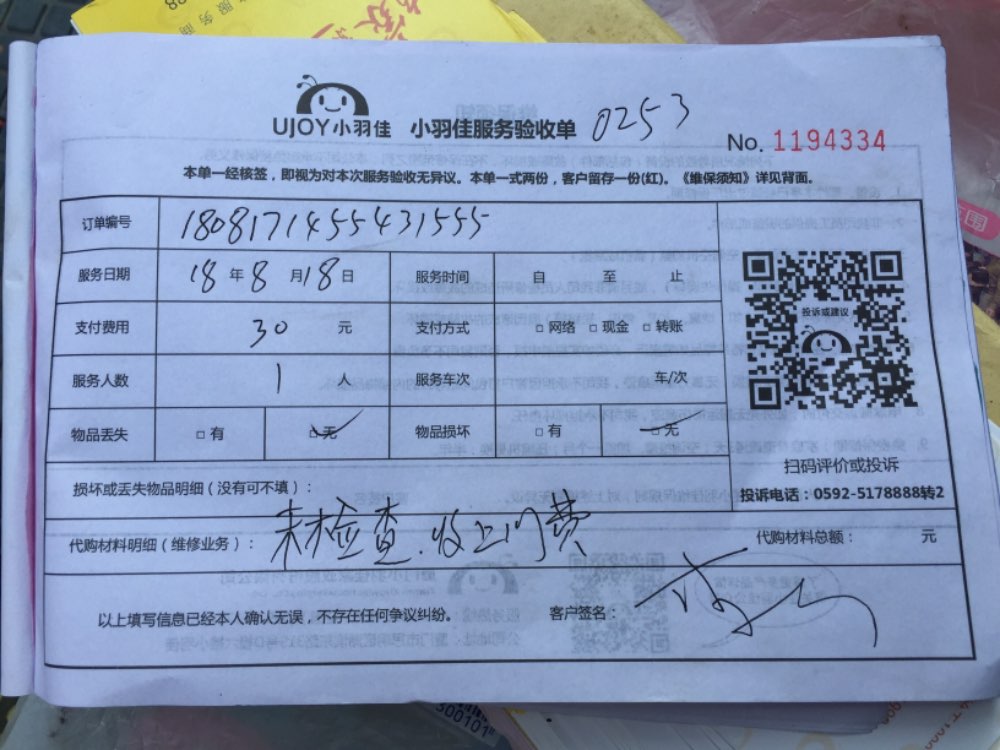 UJOY小羽佳 小羽佳服务验收单 0253
No. 1194334
本单一经核签，即视为对本次服务验收无异议。本单一式两份，客户留存一份(红)。《维保须知》详见背面。
订单编号 180817145543155​5
服务日期 18 年 8 月 18 日 服务时间 自 至 止
投诉或建议
支付费用 30 元 支付方式 □网络 □现金 □转账
服务人数 1 人 服务车次 车/次
物品丢失 □有 □无 物品损坏 □有 □无
扫码评价或投诉
损坏或丢失物品明细（没有可不填）：
投诉电话：0592-5178888转2
代购材料明细（维修业务）： 来检查.收上门费 代购材料总额： 元
以上填写信息已经本人确认无误，不存在任何争议纠纷。 客户签名：
300101